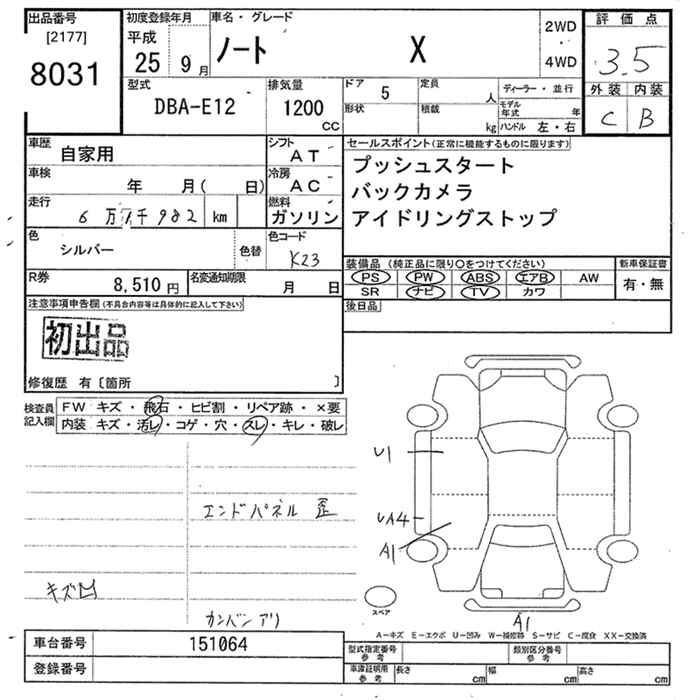 出品番号 初度登録年月 車名・グレード 2WD 評価点
[2177] 平成 ノート X 4WD 3.5
8031 25 9月 外装 内装
型式 排気量 ドア 5 定員 人 ディーラー・並行 C B
DBA-E12 1200 cc 形状 積載 kg モデル年式 年
ハンドル 左・右
車歴 自家用 シフト AT セールスポイント(正常に機能するものに限ります)
車検 年 月( 日) 冷房 AC プッシュスタート
バックカメラ
走行 km 燃料 ガソリン アイドリングストップ
色 シルバー 色替 色コード K23
装備品(純正品に限り○をつけてください) 新車保証書
R券 8,510円 名変通知期限 月 日 PS PW ABS エアB AW 有・無
SR ナビ TV カワ
注意事項申告欄(不具合内容等は具体的に記入して下さい) 後日品
初出品
修復歴 有〔箇所 〕
検査員記入欄 FW キズ・飛石・ヒビ割・リペア跡・×要
内装 キズ・汚レ・コゲ・穴・スレ・キレ・破レ
U1
エンドパネル 歪 UA4
A1
キズ凹
カンバンアリ スペア A1
A−キズ E−エクボ U−凹ミ W−補修跡 S−サビ C−腐食 XX−交換済
車台番号 151064 型式指定番号 参考 類別区分番号 参考
登録番号 車庫証明用 参考 長さ cm 幅 cm 高さ cm